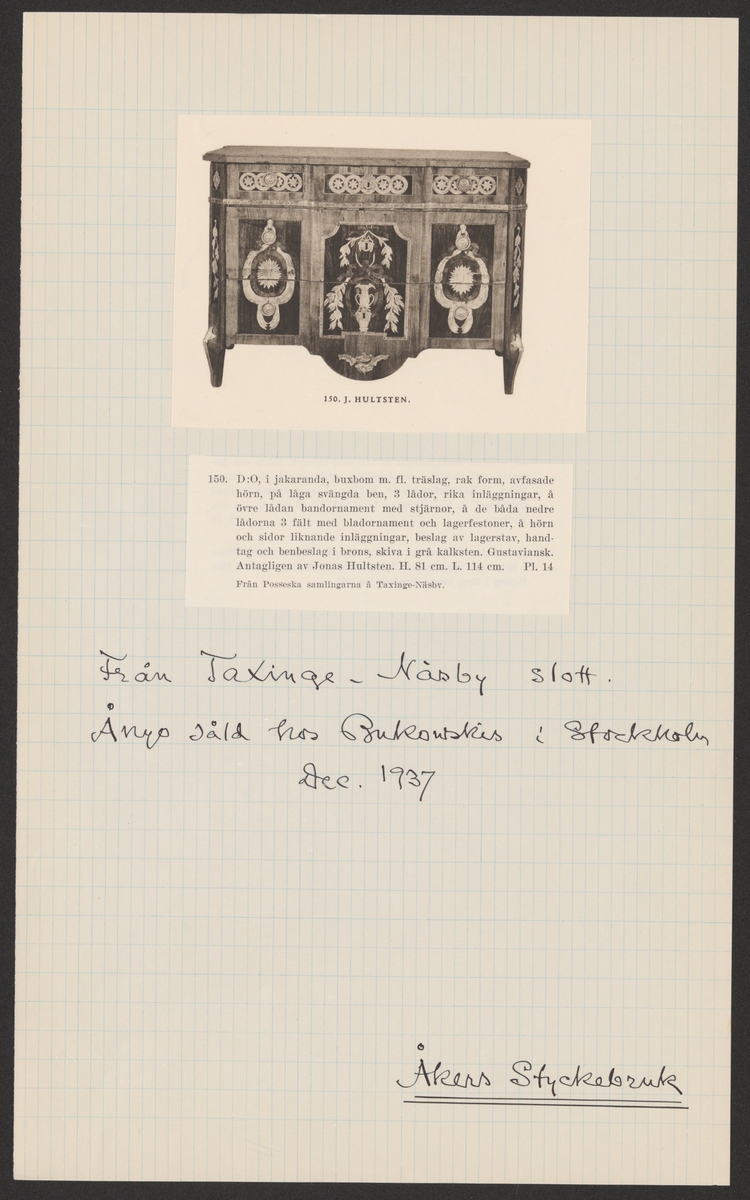 150. J. HULTSTEN.
150. D:O, i jakaranda, buxbom m. fl. träslag, rak form, avfasade
hörn, på låga svängda ben, 3 lådor, rika inläggningar, å
övre lådan bandornament med stjärnor, å de båda nedre
lådorna 3 fält med bladornament och lagerfestoner, å hörn
och sidor liknande inläggningar, beslag av lagerstav, hand-
tag och benbeslag i brons, skiva i grå kalksten. Gustaviansk.
Antagligen av Jonas Hultsten. H. 81 cm. L. 114 cm. Pl. 14
Från Posseska samlingarna å Taxinge-Näsby.
Från Taxinge - Näsby slott.
Ånyo såld hos Bukowskis i Stockholm
Dec. 1937
Åkers Styckebruk